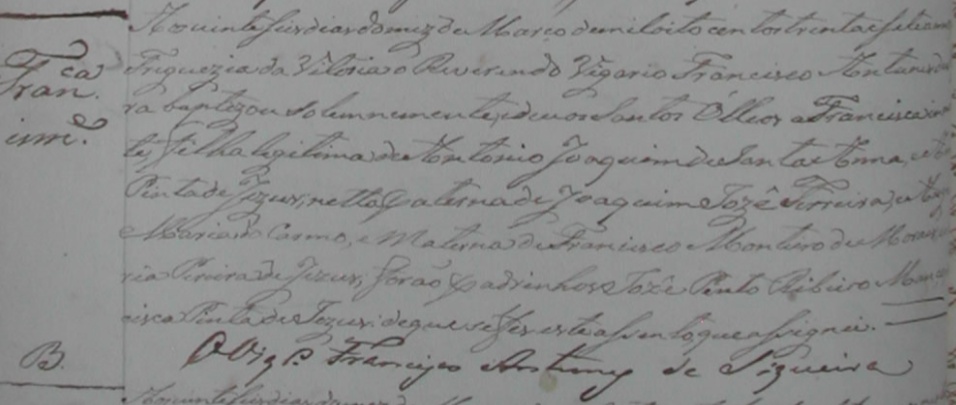 Fran.ca
inn.e
B.
Aos vinte seis dias do mez de Março de mil oito centos trinta e sete
Freguezia da Vitoria o Reverendo Vigario Francisco Antunes
ra baptizou solemnemente, e deu os Santos Olleos a Francisca inn
te, filha legitima de Antonio Joaquim de Santa Anna, e
Pinta de Jezus, netta paterna de Joaquim Jozê Ferreira, e
Maria do Carmo, e Materna de Francisco Monteiro de Moraes
ria Pireira de Jezus, forão padrinhos Jozê Pinto Ribeiro
cisca Pinta de Jezus: de que se fes este assento que assignei.
O Vig.o Francisco Antunes de Siqueira
Aos vinte seis dias do mez